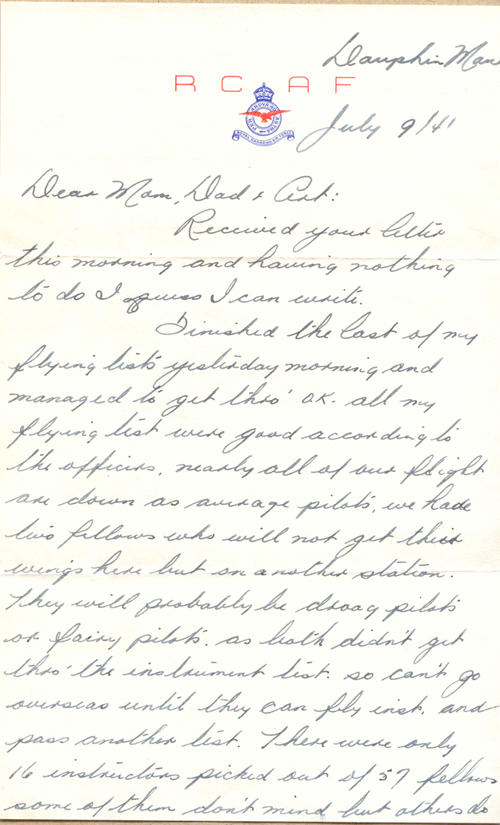 Dauphin Man
R C A F
July 9/41
Dear Mom, Dad & Art:
Received your letter
this morning and having nothing
to do I guess I can write.
Finished the last of my
flying tests yesterday morning and
managed to get thro' O.K. all my
flying test were good according to
the officers, nearly all of our flight
are down as average pilots, we have
two fellows who will not get their
wings here but on another station.
They will probably be drogg pilots
or fairy pilots. as both didn't get
thro' the instrument test. so can't go
overseas until they can fly inst. and
pass another test. There were only
16 instructors picked out of 57 fellows
some of them don't mind but others do